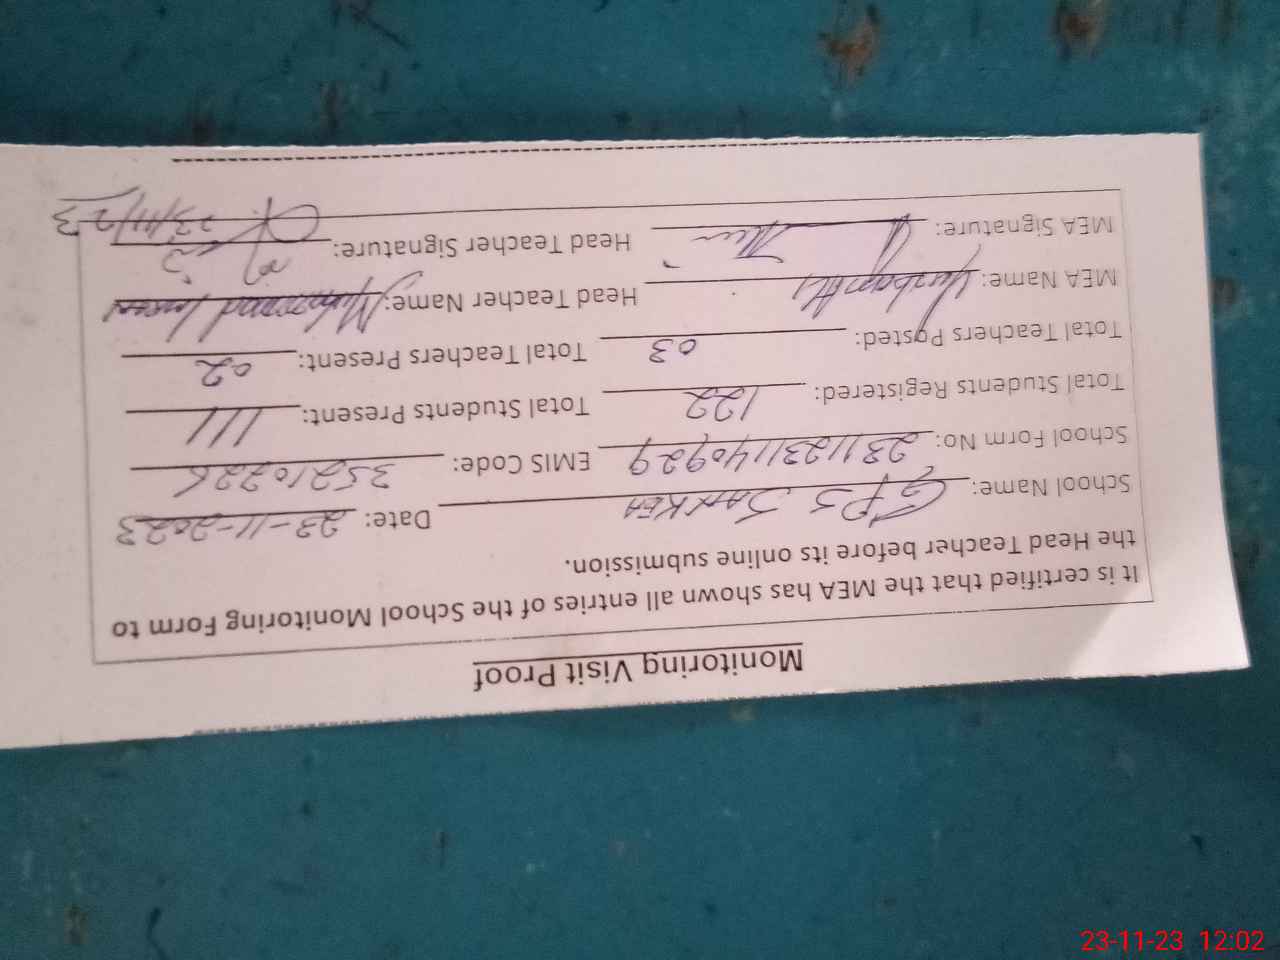 Monitoring Visit Proof
It is certified that the MEA has shown all entries of the School Monitoring Form to
the Head Teacher before its online submission.
School Name: GPS JANKEA Date: 23-11-2023
School Form No: 231123111409229 EMIS Code: 35210226
Total Students Registered: 122 Total Students Present: 111
Total Teachers Posted: 03 Total Teachers Present: 02
MEA Name: Head Teacher Name: Muhammad
MEA Signature: Head Teacher Signature:
23/11/23
23-11-23 12:02